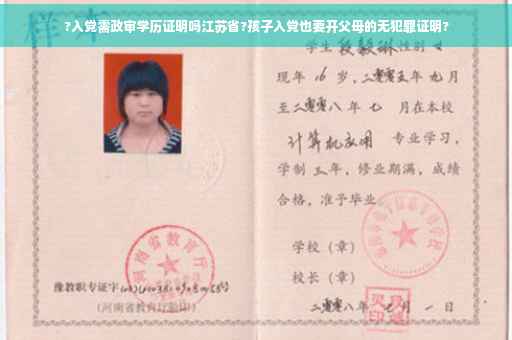 ?入党需政审学历证明吗江苏省?孩子入党也要开父母的无犯罪证明?
样本
学生 段毅琳 性别 女
现年 16 岁，二零零五年 九月
至二零零八年 七 月在本校
计算机应用 专业学习，
学制 三年，修业期满，成绩
合格，准予毕业
学校（章）
校长（章）
河南省教育厅
豫教职专证字
(河南省教育厅验印)
二零零八年 七 月 一 日